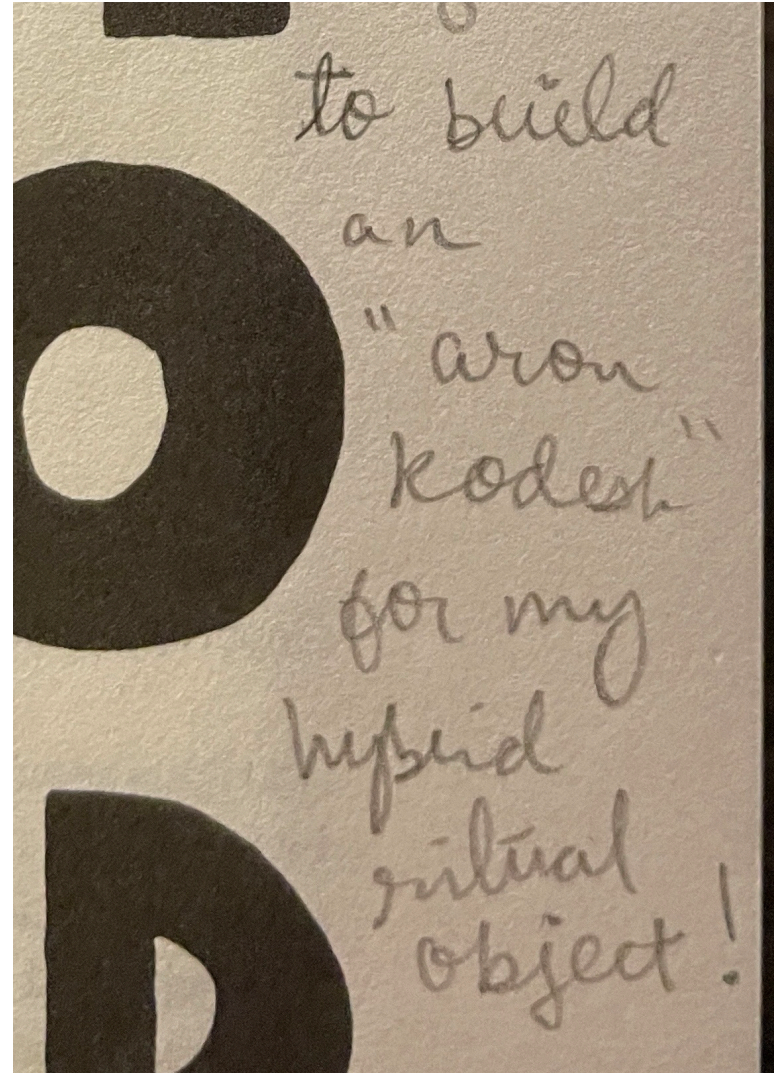 to build
an
"aron
kodesh"
for my
hybrid
ritual
object!
O
D